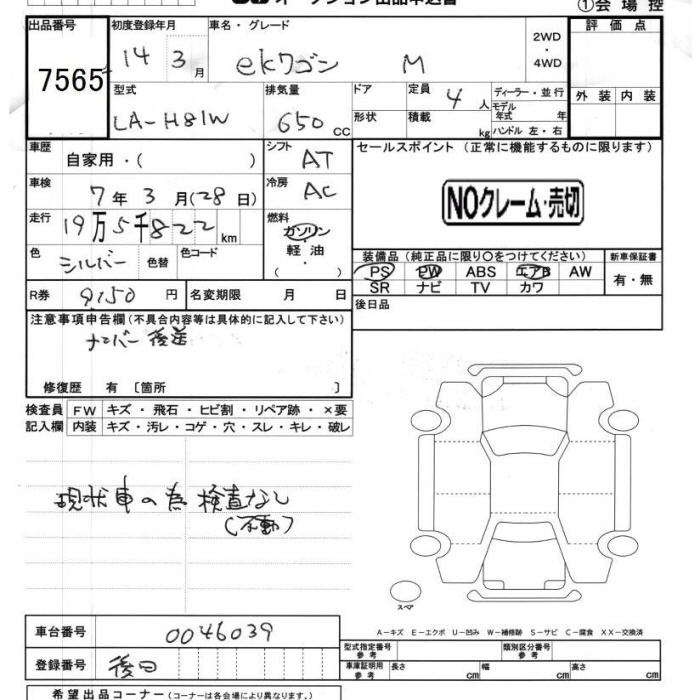 オークション出品申込書
①会場控
出品番号 初度登録年月 車名・グレード 評価点
7565 14 3月 ekワゴン M 2WD・4WD
型式 排気量 ドア 定員 4人 ディーラー・並行 外装 内装
LA-H81W 650cc 形状 積載 kg モデル年式 年
ハンドル 左・右
車歴 自家用・( ) シフト AT セールスポイント(正常に機能するものに限ります)
車検 7年3月(28日) 冷房 AC NOクレーム・売切
走行 19万5千822km 燃料 ガソリン
色 シルバー 色替 色コード 軽油 装備品(純正品に限り〇をつけてください) 新車保証書
( ・ ) PS PW ABS エアB AW 有・無
R券 9,150円 名変期限 月 日 SR ナビ TV カワ
注意事項申告欄(不具合内容等は具体的に記入して下さい) 後日品
ナンバー 後送
修復歴 有 〔箇所 〕
検査員 FW キズ・飛石・ヒビ割・リペア跡・×要
記入欄 内装 キズ・汚レ・コゲ・穴・スレ・キレ・破レ
現状車の為 検査なし
(不動)
スペア
A-キズ E-エクボ U-凹み W-補修跡 S-サビ C-腐食 XX-交換済
車台番号 0046039 型式指定番号 参考 類別区分番号 参考
登録番号 後日 車庫証明用 参考 長さ cm 幅 cm 高さ cm
希望出品コーナー(コーナーは各会場により異なります。)